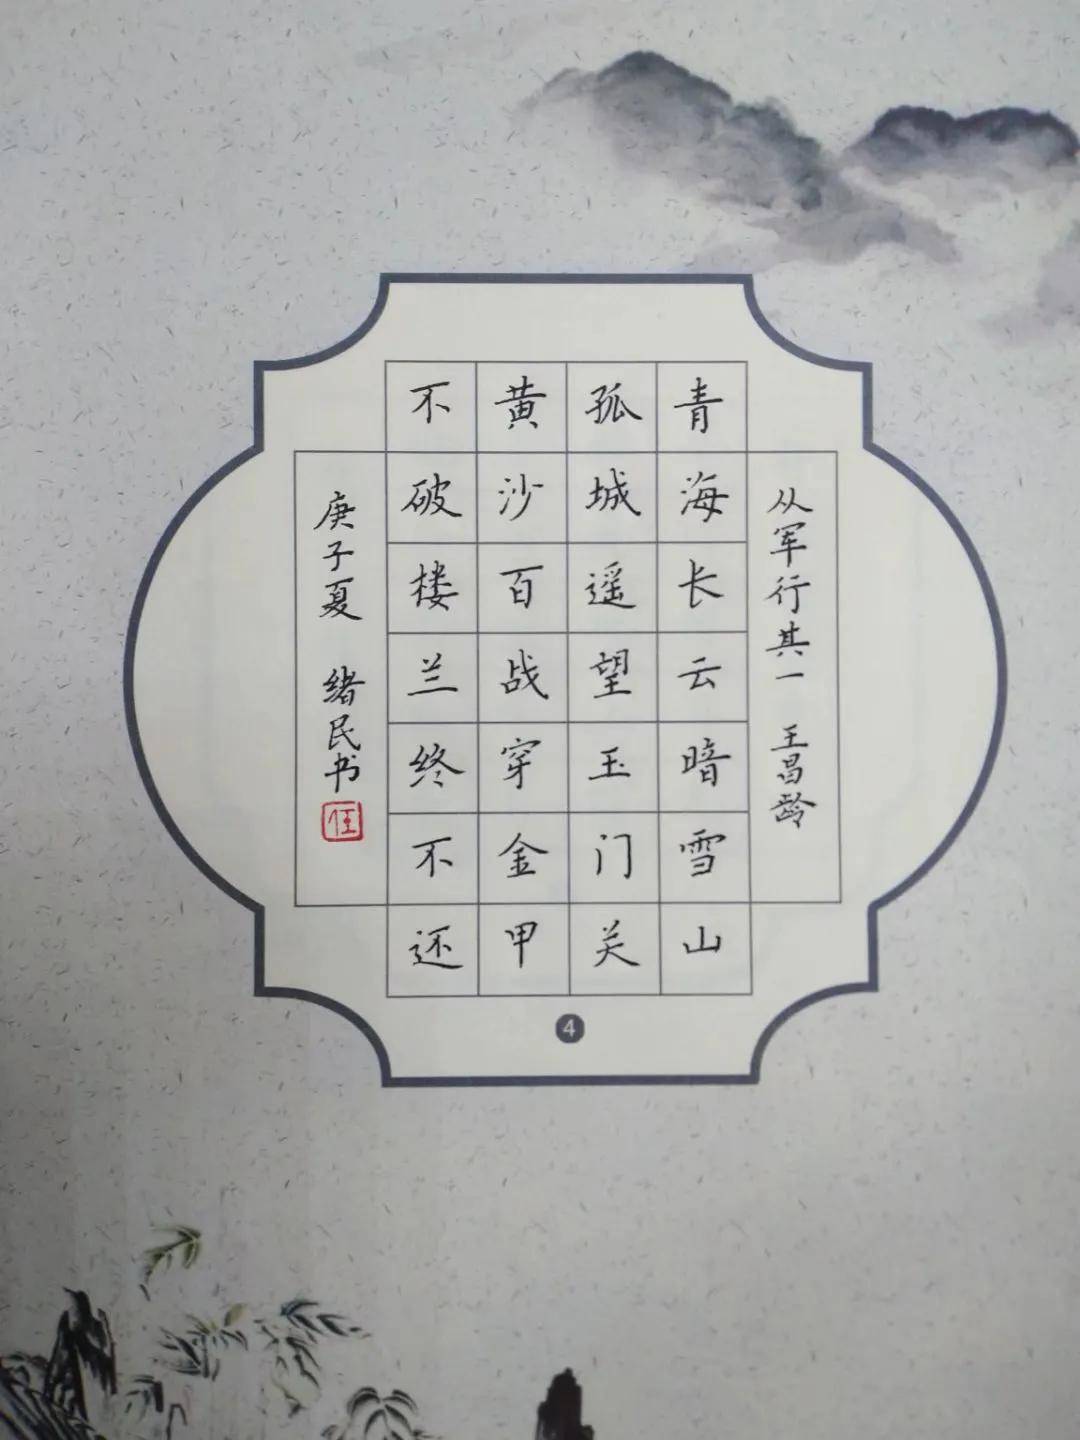 从军行其一 王昌龄
青海长云暗雪山
孤城遥望玉门关
黄沙百战穿金甲
不破楼兰终不还
庚子夏 绪民书
任
4